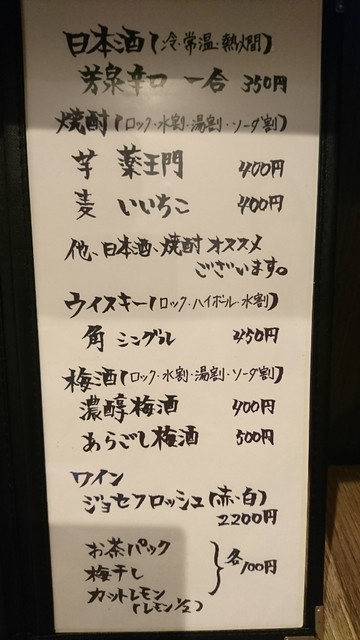 日本酒(冷・常温・熱燗)
芳泉辛口 一合 350円
焼酎(ロック・水割・湯割・ソーダ割)
芋 薬王門 400円
麦 いいちこ 400円
他、日本酒、焼酎 オススメ
ございます。
ウイスキー(ロック・ハイボール・水割)
角 シングル 450円
梅酒(ロック・水割・湯割・ソーダ割)
濃醇梅酒 400円
あらごし梅酒 500円
ワイン
ジョセフロッシュ(赤・白)
2200円
お茶パック
梅干し
カットレモン
(レモン1/2)
各100円